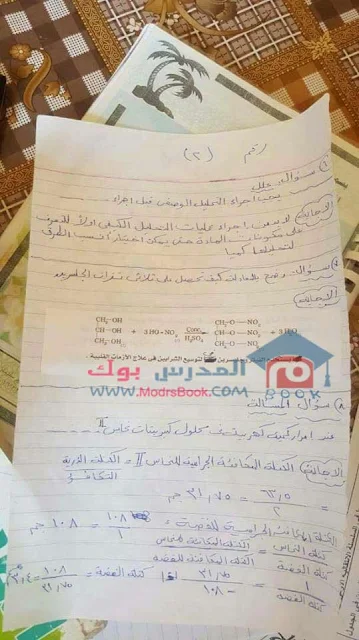 رقم (٢)
سؤال علل
يجب اجراء التحليل الوصفى قبل اجراء
الاجابة
لا بد من اجراء عمليات التحليل الكيفى اولاً للتعرف
على مكونات المادة حتى يمكن اختيار انسب الطرق
لتحليلها كميا
سؤال وضح بالمعادلات كيف تحصل على ثلاثى نترات الجلسرين
الاجابة
CH₂-OH CH₂-O-NO₂
CH-OH + 3HO-NO₂ Conc. H₂SO₄ CH-O-NO₂ + 3H₂O
CH₂-OH CH₂-O-NO₂
لتوسيع الشرايين فى علاج الأزمات القلبية .
المدرس بوك
www.ModrsBook.com
سؤال المسألة
عند امرار كمية كهربية فى محلول كبريتات نحاس II
الاجابة الكتلة المكافئة الجرامية للنحاس II = الكتلة الذرية / التكافؤ
= ٦٣٫٥ / ٢ = ٣١٫٧٥ جم
الجرامية للفضة = ١٠٨ / ١ = ١٠٨ جم
كتلة النحاس / كتلة الفضة = الكتلة المكافئة للنحاس / الكتلة المكافئة للفضة
١ / كتلة الفضة = ٣١٫٧٥ / ١٠٨ كتلة الفضة = ١٠٨ / ٣١٫٧٥ = ٣٫٤